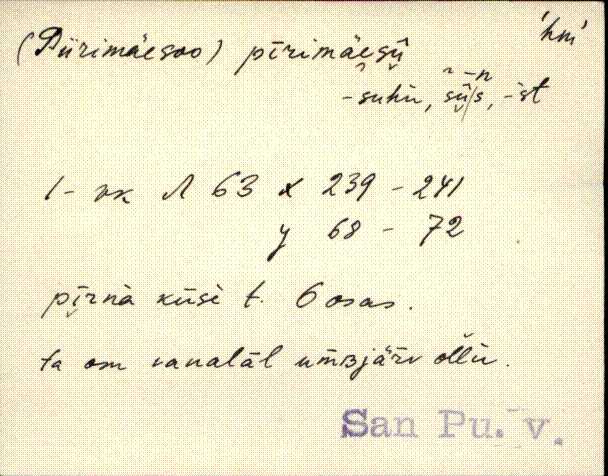 'hm'
(Piirimäesoo) pīrimäesū̬
-suhü, sū̬s, -st
1- vk Л 63 x 239 - 241
y 68 - 72
pi̬rnà küsè t. 6 osas.
ta om vanalāl ümᴃjärv ollü.
San Pu. v.